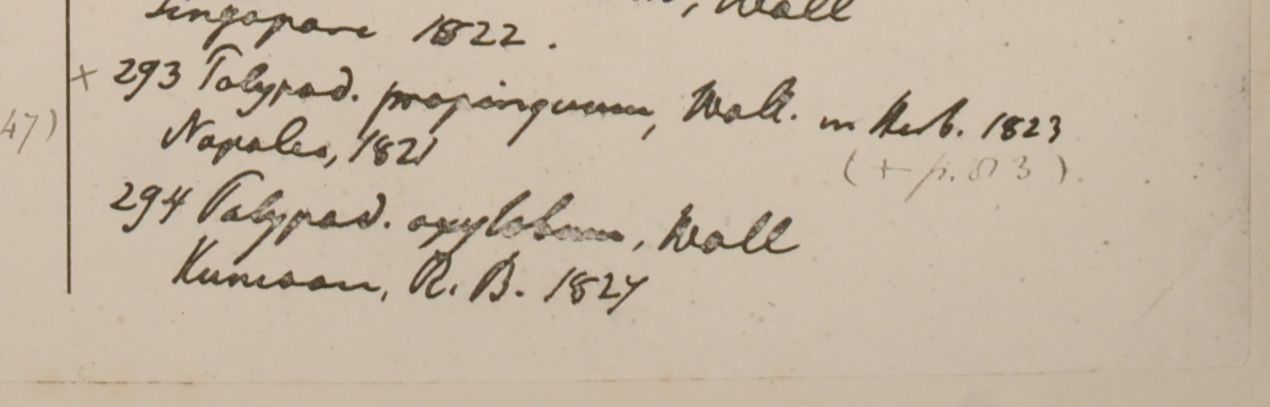 Singapore 1822.
+ 293 Polypod. propinquum, Wall. in Herb. 1823
47) Napalea, 1821
(+ p. 83)
294 Polypod. oxylobum, Wall
Kumaon, R. B. 1827